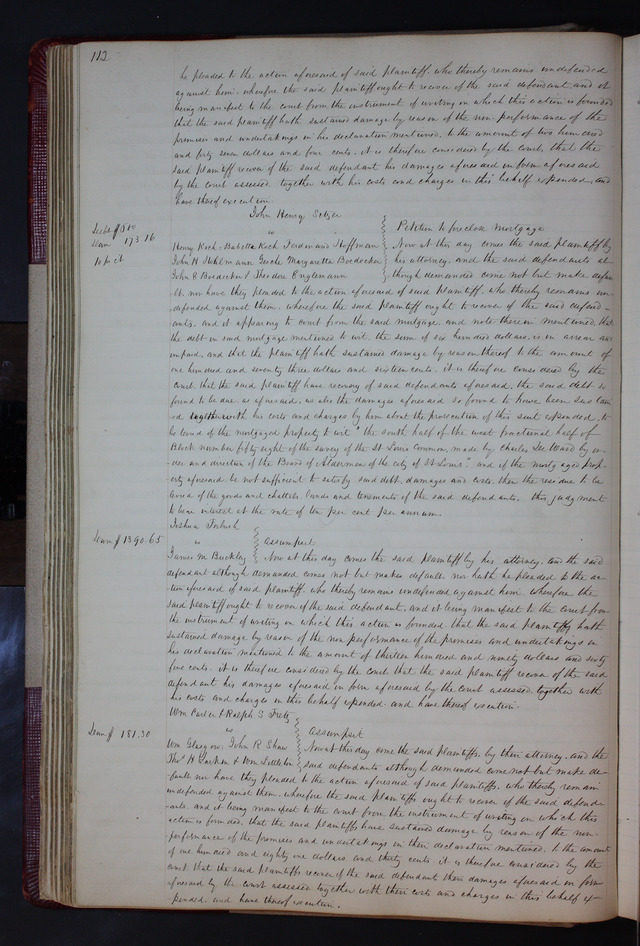 112
he pleaded to the action aforesaid of said plaintiff. who thereby remains undefended
against him. wherefore the said plaintiff ought to recover of the said defendant, and it
being manifest to the court from the instrument of writing on which this action is founded
that the said plaintiff hath sustained damage by reason of the non-performance of the
promises and undertakings in his declaration mentioned, to the amount of two hundred
and forty seven dollars and four cents. it is therefore considered by the court, that the
said plaintiff recover of the said defendant his damages aforesaid in form aforesaid
by the court assessed together with his costs and charges in this behalf expended, and
have thereof execution.
John Henry Setzer
vs
Petition to foreclose mortgage
Debt $600
Dam 173.16
10 pr ct
Henry Koch, Babetta Koch Ferdinand Hoffmann
Now at this day comes the said plaintiff by
John H Stahlmann Gesche Margaretta Boedecker
his attorney, and the said defendants al-
John E Boedecker & Theodore Englemann
though demanded come not but make defau
lt. nor have they pleaded to the action aforesaid of said plaintiff. who thereby remains un-
defended against them. wherefore the said plaintiff ought to recover of the said defend-
ants. and it appearing to court from the said mortgage and note therein mentioned, that
the debt in said mortgage mentioned to wit the sum of six hundred dollars, is in arrear and
unpaid, and that the plaintiff hath sustained damage by reason thereof to the amount of
one hundred and seventy three dollars and sixteen cents, it is therefore considered by the
court that the said plaintiff have recovery of said defendants aforesaid, the said debt so
found to be due as aforesaid, as also the damages aforesaid so found to have been sustain
ed together with his costs and charges by him about the prosecution of this suit expended, to
be levied of the mortgaged property to wit "the south half of the west fractional half of
Block number fifty eight of the survey of the St Louis Common, made by Charles DeWard by or-
der and direction of the Board of Aldermen of the city of St Louis" and if the mortgaged prop-
erty aforesaid be not sufficient to satisfy said debt, damages and costs, then the residue to be
levied of the goods and chattels lands and tenements of the said defendants. this judgment
to bear interest at the rate of ten per cent per annum.
Joshua Forbush
vs
Assumpsit
Dam $1390.65
James M Buckley
Now at this day comes the said plaintiff by his attorney, and the said
defendant although demanded comes not but makes default nor hath he pleaded to the ac-
tion aforesaid of said plaintiff. who thereby remains undefended against him wherefore the
said plaintiff ought to recover of the said defendant. and it being manifest to the court from
the instrument of writing on which this action is founded that the said plaintiff hath
sustained damage by reason of the non performance of the promises and undertakings in
his declaration mentioned to the amount of thirteen hundred and ninety dollars and sixty
five cents. it is therefore considered by the court that the said plaintiff recover of the said
defendant his damages aforesaid in form aforesaid by the court assessed together with
his costs and charges in this behalf expended. and have thereof execution.
Wm Carter & Ralph S Fretz
vs
Assumpsit
Dam $181.30
Wm Glasgow. John R Shaw
Now at this day come the said plaintiffs, by their attorney. and the
Thos H Larkin & Wm Littleton
said defendants although demanded come not but make de-
fault nor have they pleaded to the action aforesaid of said plaintiffs. who thereby remain
undefended against them. wherefore the said plaintiffs ought to recover of the said defend-
ants. and it being manifest to the court from the instrument of writing on which this
action is founded, that the said plaintiffs have sustained damage by reason of the non
performance of the promises and undertakings in their declaration mentioned. to the amount
of one hundred and eighty one dollars and thirty cents it is therefore considered by the
court that the said plaintiffs recover of the said defendant their damages aforesaid in form
aforesaid by the court assessed together with their costs and charges in this behalf ex-
pended. and have thereof execution.